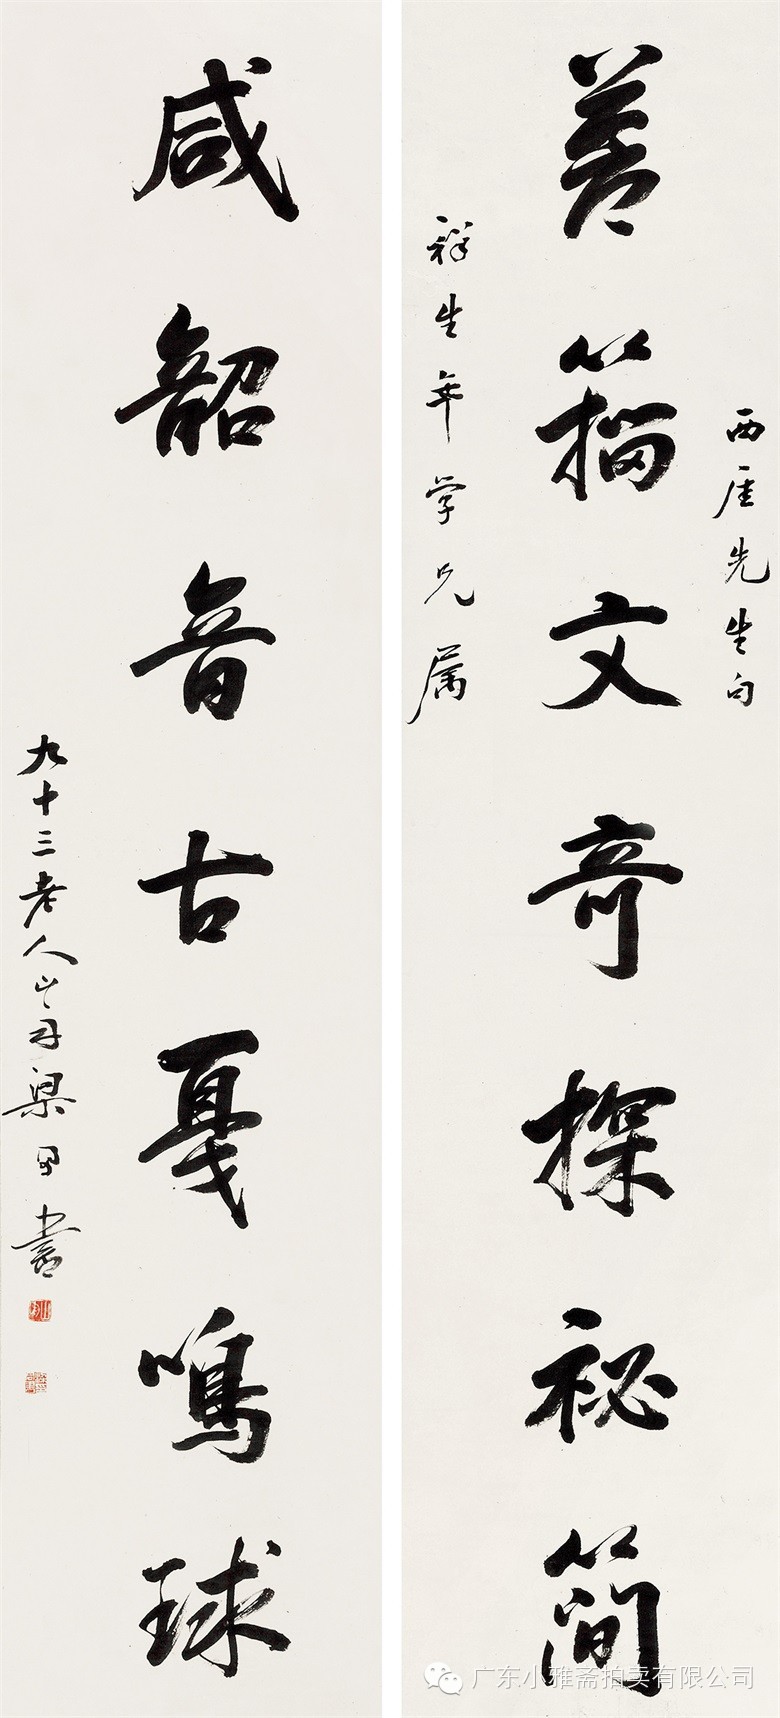 西厓先生句
蒼籀文奇探祕簡
祥生年学兄属
咸韶音古戛鳴球
九十三老人山舟梁同書
广东小雅斋拍卖有限公司